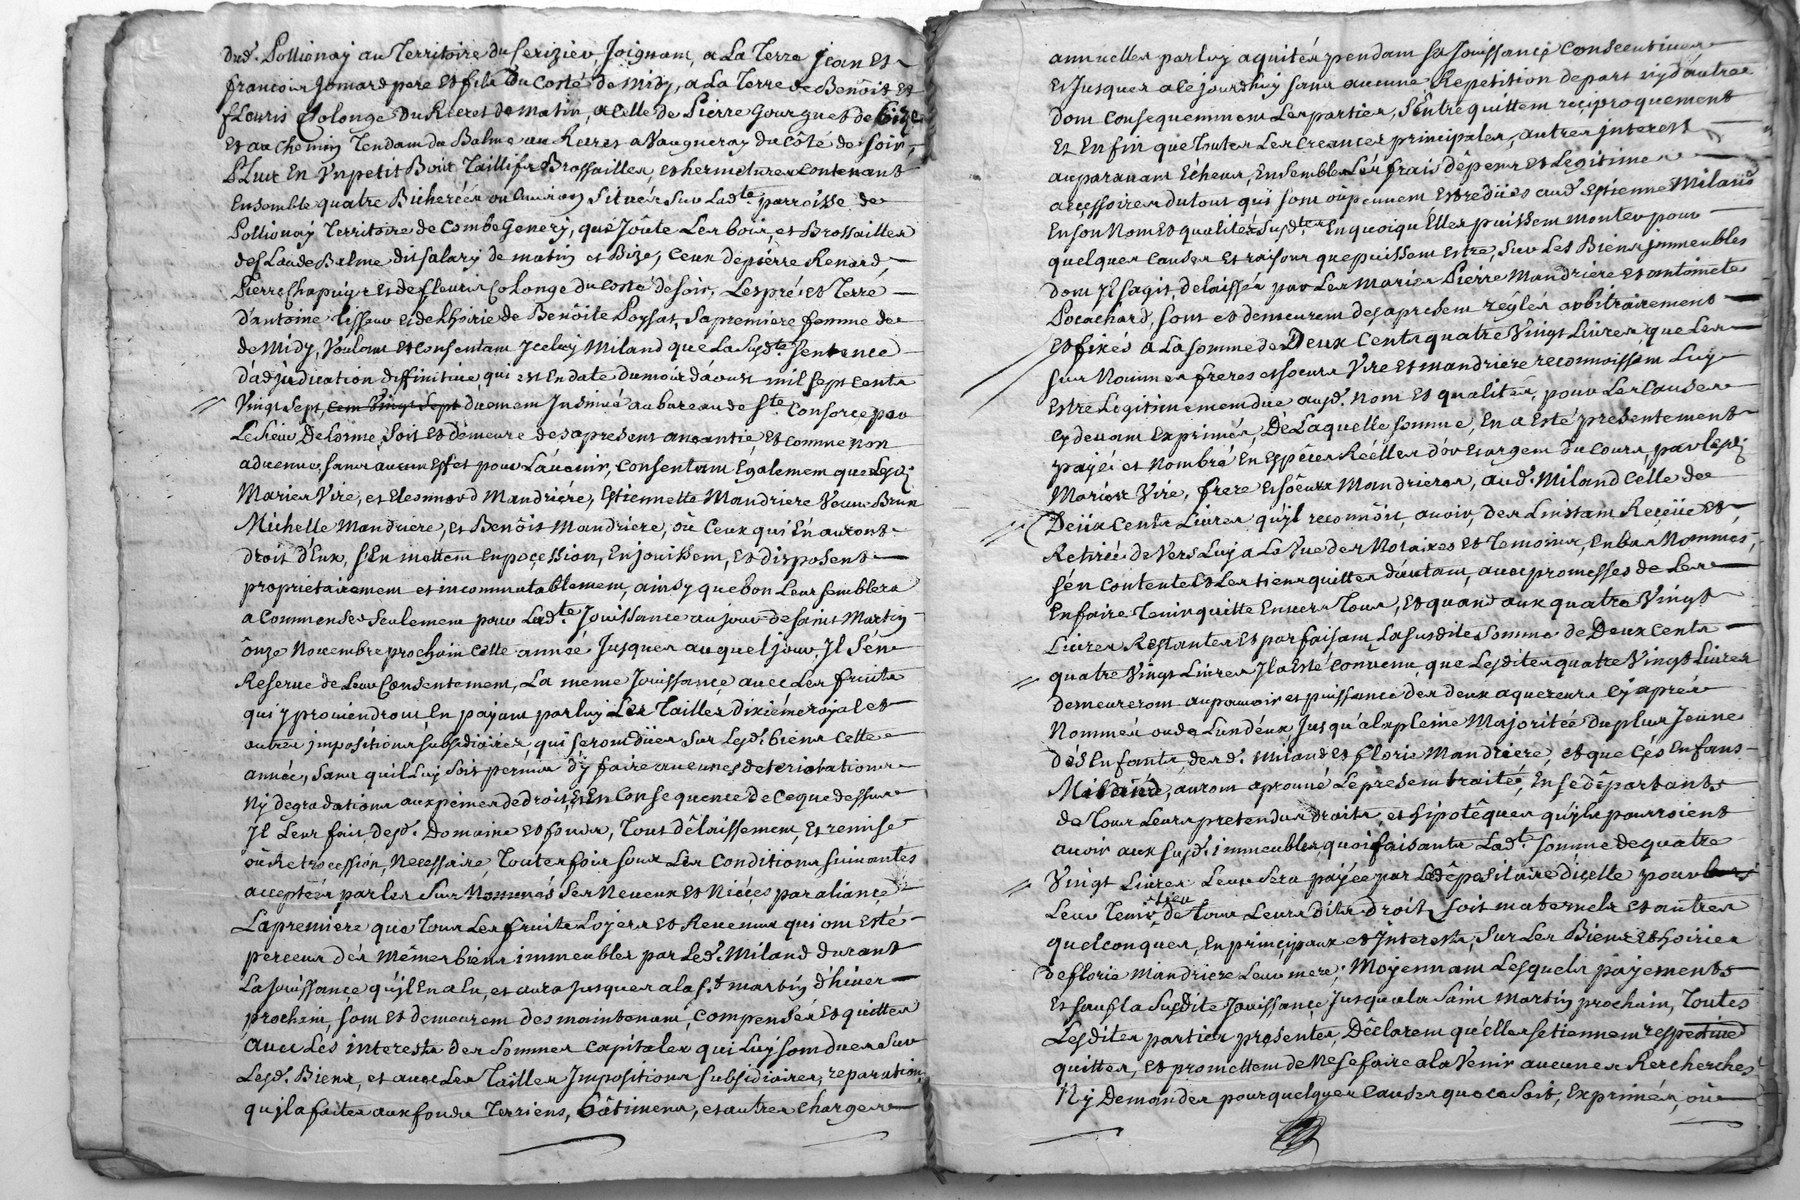 dud. Pollionay au Territoire du Cerizier, Joignant, a La Terre jean Et
francois Jomard pere Et fils Du Costé de Midy, a La Terre de Benoist Et
fleuris Colonge Du Reces de matin, a Celle de Pierre Gourguet de bize
Et au Chemin Tendant du Balme au Reres a Vaugneray du Côté de soir,
Plus En Un petit Bois Taillifs Brossailles, et hermitures Contenant
Ensemble quatre Bicherées ou Environ Situés Sur Lad.te parroisse de
Pollionay Territoire de Combe Genery, qué Joûte Les bois, et Brossailles
de Claude Balme dit salary de matin et Bize, Ceux de pierre Renard,
Pierre Chapuy Et de fleuris Colonge du Costé de soir, Les prés et Terre
d'antoine Tisseur et de Lhoirie de Benôite Poysat, Sa premiere femme de
de Midy, Voulant et Consentant Jceluy Miland que La Susd.te Sentence
d'adjudication diffinitive, qui est En date du mois d'aoust mil sept cents
Vingt sept, Cent Vingt Sept duement Jnsinué au bureau de S.te Consorce par
Le sieur Delorme, soit Et demeure des apresent aneantie, Et comme non
advenue, sans aucun Effet pour L'avenir, Consentant Egalement que Lesd.
Maries Vire, et Eleonnord Mandriére, Estiennette Mandriere Veuve Brun
Michelle Mandriere, et Benôist Mandriere, où Ceux qui En auront
droit d'Eux, s'En mettent En pocession, En jouissent, Et disposent
proprietairement et incommutablement, ainsy que bon Leur semblera
a Commencer seulement pour Lad.te Jouissance au jour de saint Martin
ônze Novembre prochain Cette année Jusques auquel jour, Jl S'en
Reserve de Leur Consentement, La même Jouissance avec Les fruits
qui y proviendront En payant par luy Les Tailles dixiéme royal et
autres impositions subsidiaires, qui seront dües sur Lesd. biens Cette
année, Sans qu'il Luy soit permis d'ÿ faire aucunes deteriorations
Ny degradations aux peines de droit, Et En Consequence de Ce que dessus
Jl Leur fait desd. Domaine Et fonds, Tout délaissement, Et remise
où Retrocession, Necessaire, Toutesfois sous Les Conditions suivantes
acceptées par les Sus Nommés Ses Neveux Et Niéces par aliance
La premiere que Tous Les fruits Loyers Et Revenus qui ont Esté
perceus dés Mêmes biens immeubles par Led. Miland durant
La joüissance qu'jl En a Eu, et aura Jusques a la s.t martin d'hiver
prochain, sont Et demeurent des maintenant, Compensés Et quittes
avec Les interests des Sommes Capitales qui Luy sont dues sur
Lesd. Biens, et avec Les Tailles Jmpositions subsidiaires, reparations
qu'jl a faites aux fonds Terriens, bâtimens, et autres Charges
annuelles par luy aquités pendant sa Jouissance Consecutives
Et Jusques a Ce jourdhuy sans aucune Repetition de part ny d'autre
dont Consequemment Les parties, S'Entre quittent reciproquement
Et Enfin que toutes Les Creances principales, autres jnterest
auparavant Echeus, Ensembles Les frais depens et Legitimes
accessoires du tout qui sont où peuvent Estre dües aud. Estienne Miland
En son Nom Et qualités Susd.tes En quoi qu'Elles puissent monter pour
quelques Causes Et raisons que puissent Estre, Sur Les Biens jmmeubles
dont Jl s'agit, delaissés par Les Maries Pierre Mandriere et antoinete
Pocachard, sont et demeurent des apresent reglés arbitrairement
Et fixés a La somme de Deux Cents quatre Vingt Livres, que Les
Sus Nommes freres et soeurs Vire et mandriere reconnoissent Luy
Estre Legitimement due aud. nom Et qualités, pour Les Causes
Cy devant Exprimés, De Laquelle somme, En a Esté presentement
payé et Nombré En Espéces Réelles d'or Et argent du Cours par lesd.
Maries Vire, frere Et soeurs Mandrieres, aud. Miland Celle de
Deüx Cents Livres qu'jl reconnôit avoir, des L'instant Reçeüe Et
Retirée de Vers Luy a La Vue des Notaires Et Temoins, En bas Nommés,
s'en Contente Et Les tiens quittes d'autant, avec promesses de Les
En faire Tenir quitte Envers Tous, Et quand aux quatre Vingt
Livres Restantes Et parfaisant La susdite Somme de Deux Cents
quatre Vingt Livres Jl a Esté Convenu que Lesdites quatre Vingt Livres
demeureront au pouvoir et puissance des deux aquereurs Cy aprés
Nommés ou de L'un d'eux, Jusqu'a la pleine Majoritée Du plus Jeune
dés Enfants desd. Miland Et florie Mandriere, et que Cés Enfans
Miland, auront aprouvé Le present traité, En se départants
de Tous Leurs pretendus droits, et hipotêques qu'jls pourroient
avoir aux susd. immeubles, quoi faisants Lad.te somme de quatre
Vingt Livres Leur Sera payée par Le dépositaire d'icelle pour
Leur Tenir Lieu de Tous Leurs dits droits soit maternels et autres
quelconques, En principaux et Jnterests, Sur Les Biens Et hoiries
de florie Mandriere Leur mere, Moyennant Lesquels payements
Et sauf La Susdite Jouissance Jusqu'a la Saint Martin prochain, Toutes
Lesdites parties presentes, Declarent qu'elles se tiennent respective
quittes, Et promettent de Ne se faire a la Venir aucunes Recherches
Ny Demandes pour quelques Causes que ce soit, Exprimés, où